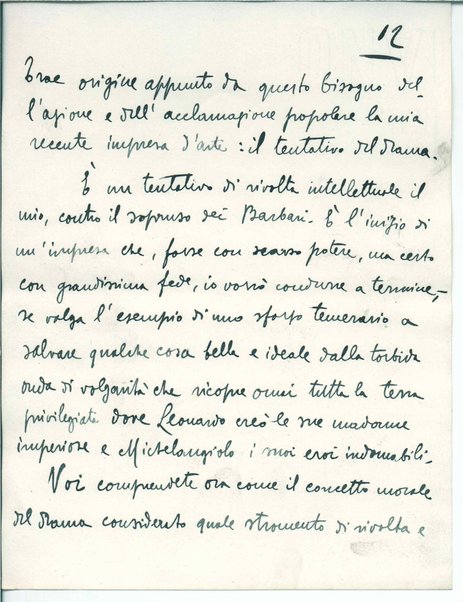 12
Trae origine appunto da questo bisogno del-
l'azione e dell'acclamazione popolare la mia
recente impresa d'arte: il tentativo del drama.
È un tentativo di rivolta intellettuale il
mio, contro il sopruso dei Barbari. È l'inizio di
un'impresa che, forse con scarso potere, ma certo
con grandissima fede, io vorrò condurre a termine,
se valga l'esempio di uno sforzo temerario a
salvare qualche cosa bella e ideale dalla torbida
onda di volgarità che ricopre omai tutta la terra
privilegiata dove Leonardo creò le sue madame
imperiose e Michelangiolo i suoi eroi indomabili.
Voi comprendete ora come il concetto morale
del drama considerato quale stromento di rivolta e